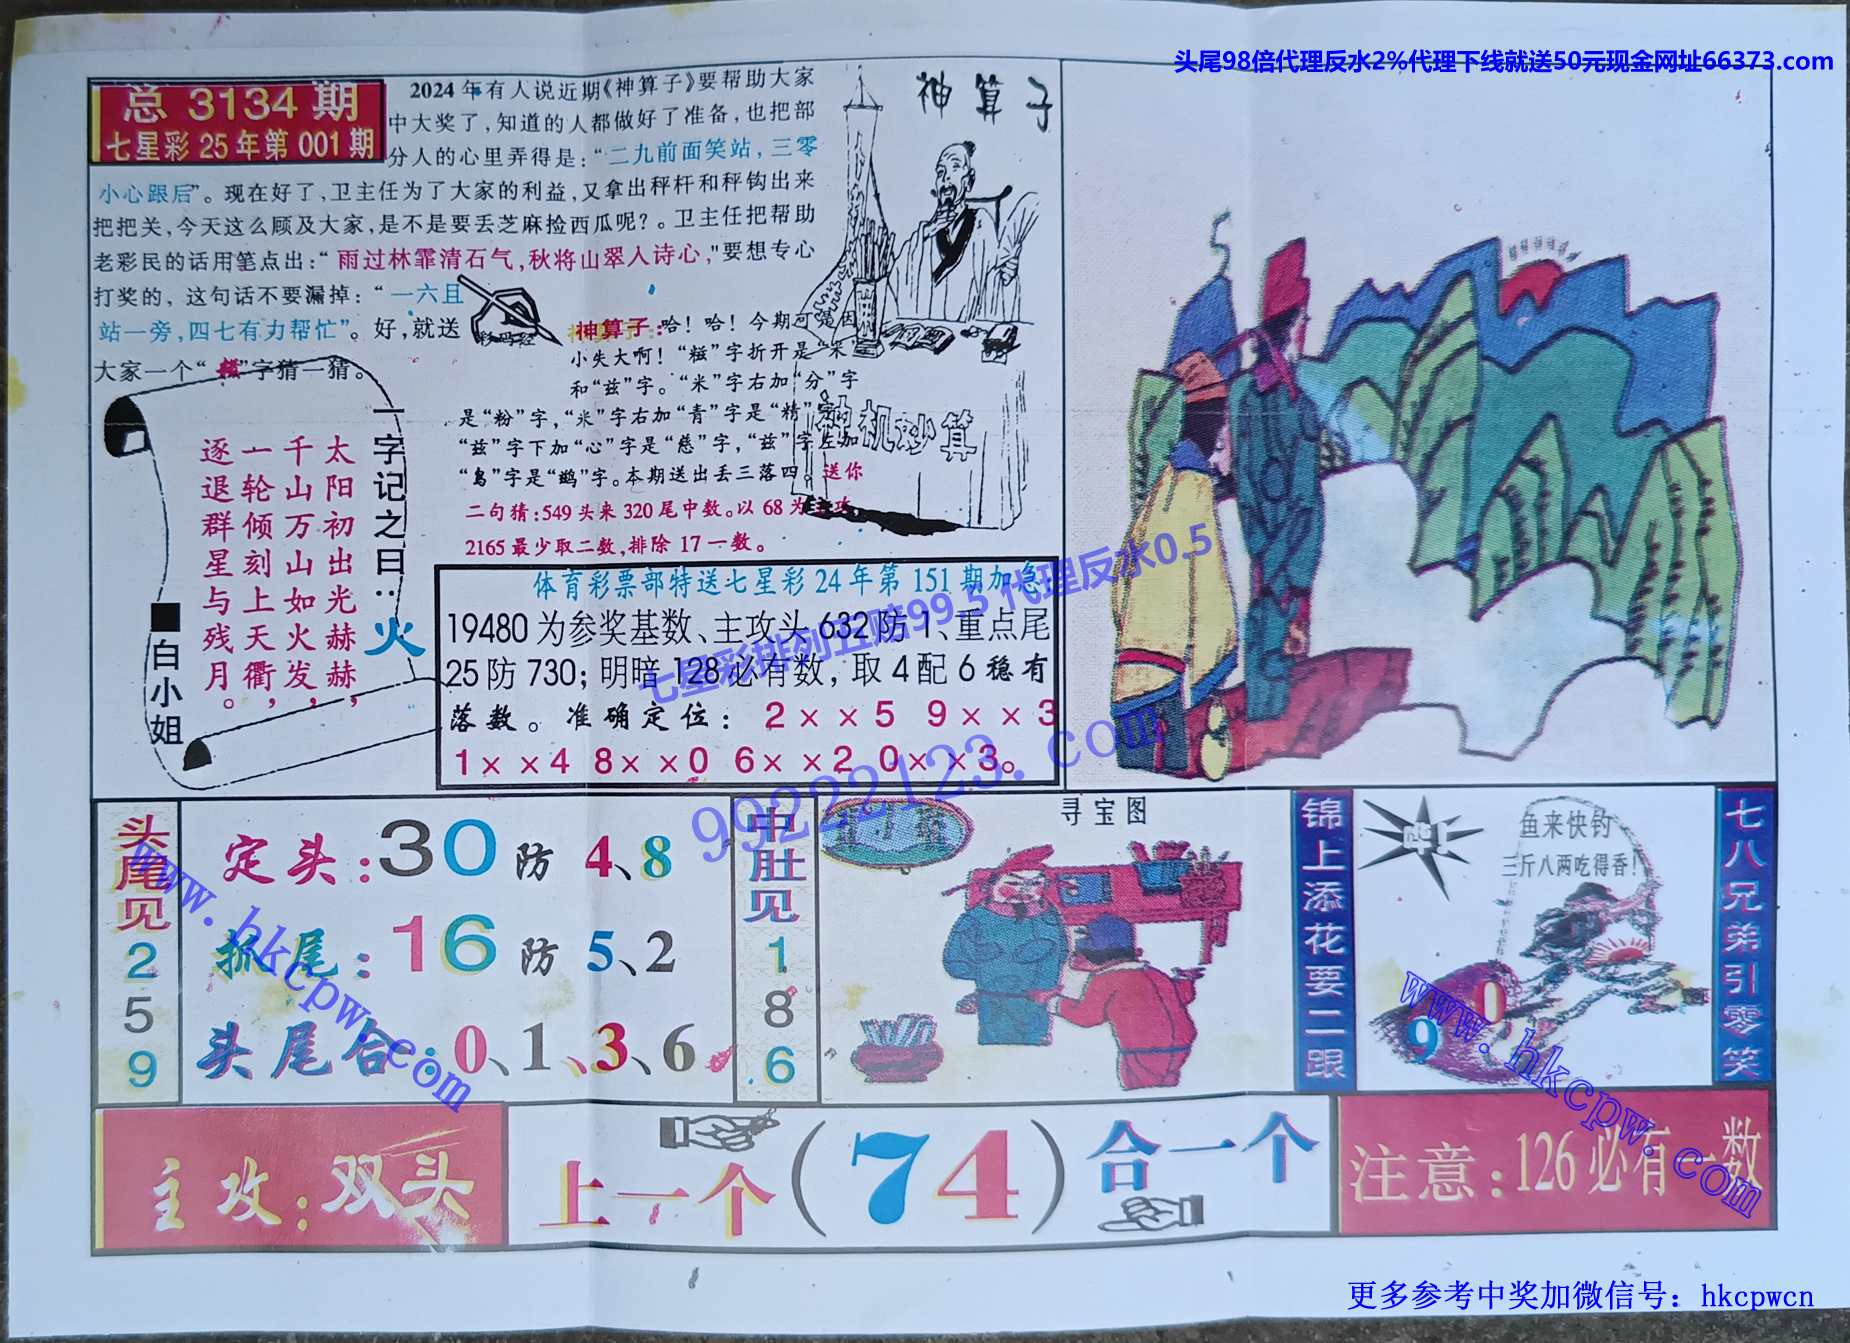 头尾98倍代理反水2%代理下线就送50元现金网址66373.com
总 3134 期
七星彩 25 年第 001 期
2024 年有人说近期《神算子》要帮助大家
中大奖了，知道的人都做好了准备，也把部
分人的心里弄得是：“二九前面笑站，三零
小心跟后”。现在好了，卫主任为了大家的利益，又拿出秤杆和秤钩出来
把把关，今天这么顾及大家，是不是要丢芝麻捡西瓜呢？。卫主任把帮助
老彩民的话用笔点出：“雨过林霏清石气，秋将山翠入诗心，”要想专心
打奖的，这句话不要漏掉：“一六且
站一旁，四七有力帮忙”。好，就送
大家一个“糍”字猜一猜。
神算子
神算子：哈！哈！今期可是因
小失大啊！“糍”字折开是“米”
和“兹”字。“米”字右加“分”字
是“粉”字，“米”字右加“青”字是“精”字，
“兹”字下加“心”字是“慈”字，“兹”字左加
“鸟”字是“鹚”字。本期送出丢三落四。送你
二句猜：549 头来 320 尾中数。以 68 为主攻
2165 最少取二数，排除 17 一数。
神机妙算
一字记之曰：火
太阳初出光赫赫，
千山万山如火发，
一轮倾刻上天衢，
逐退群星与残月。
■白小姐
体育彩票部特送七星彩 24 年第 151 期加急：
19480 为参奖基数、主攻头 632 防 1、重点尾
25 防 730；明暗 128 必有数，取 4 配 6 稳有
落数。准确定位：2××5 9××3
1××4 8××0 6××2 0××3。
七星彩排列五赔99.5 代理反水0.5
99222123.com
头尾见 2 5 9
定头：30 防 4、8
抓尾：16 防 5、2
头尾合：0、1、3、6
www.hkcpw.com
中肚见 1 8 6
寻宝图
锦上添花要二跟
鱼来快钓
三斤八两吃得香！
9 0
www.hkcpw.com
七八兄弟引零笑
主攻：双头
上一个（74）合一个
注意：126 必有一数
更多参考中奖加微信号：hkcpwcn